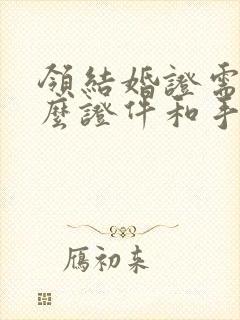 領結婚證需
麼證件和手
鴈初来